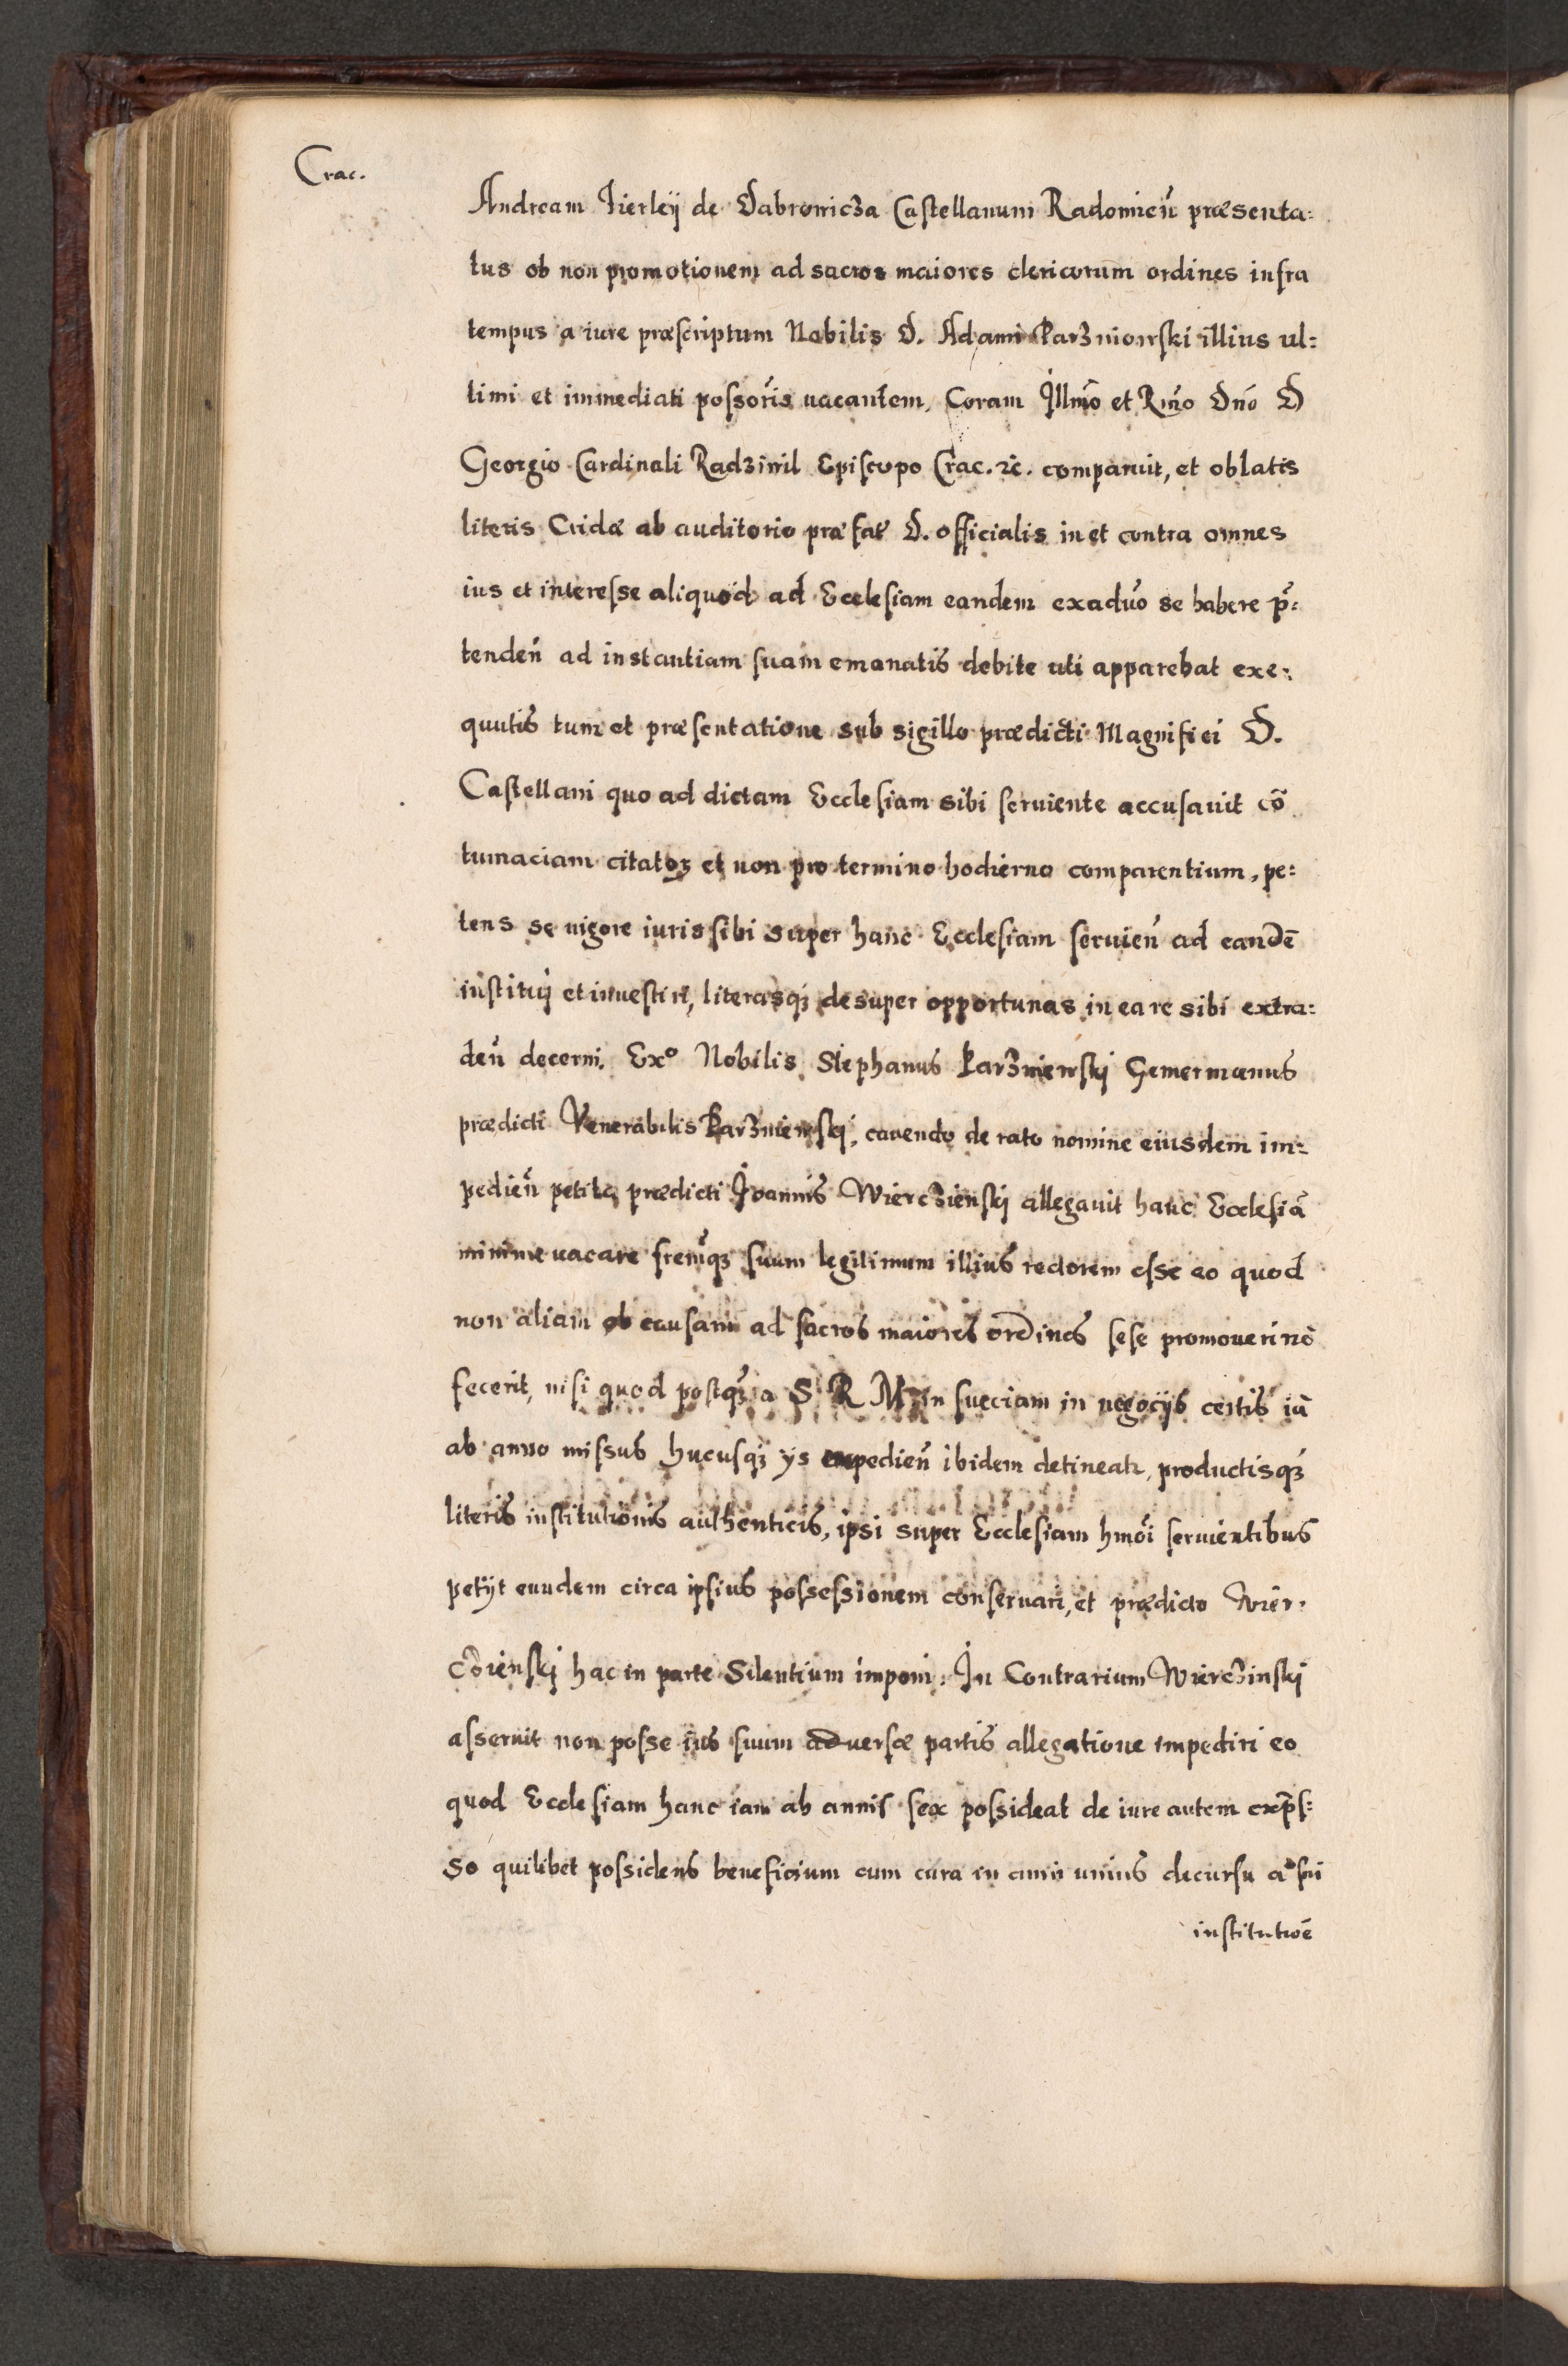 Crac.
Andream Firleÿ de Dabrowicza Castellanum Radomień præsenta=
tus ob non promotionem ad sacros maiores clericorum ordines infra
tempus a iure præscriptum Nobilis D. Adami Parzniowski illius ul=
timi et immediati possoris uacantem, Coram Illmo et Rmo Dno D
Georgio Cardinali Radziwil Episcopo Crac. &c. comparuit, et oblatis
literis Cridæ ab auditorio præfat D. officialis in et contra omnes
ius et interesse aliquod ad Ecclesiam eandem exaduo se habere p̃=
tendeñ ad instantiam suam emanatis debite uti apparebat exe=
quutis tum et præsentatione sub sigillo prædicti Magnifici D.
Castellani quo ad dictam Ecclesiam sibi seruiente accusauit cō
tumaciam citatoꝝ et non pro termino hodierno comparentium, pe=
tens se uigore iuris sibi super hanc Ecclesiam seruieñ ad eandē
institui et inuestiri, literasqꝫ desuper opportunas in ea re sibi extra=
deñ decerni. Exº Nobilis Stephanus Parzniewskj Germanus
prædicti Venerabilis Parzniewskj, cauendo de rato nomine eiusdem im=
pedieñ petita prædicti Joannis Wierczienskj allegauit hanc Ecclesiā
minime uacare fremqꝫ suum legitimum illius rectorem esse eo quod
non aliam ob causam ad sacros maiores ordines sese promoueri nō
fecerit, nisi quod postqꝫ a S R M in sueciam in negocÿs certis iā
ab anno missus hucusqꝫ ÿs expedieñ ibidem detineatr, productisqꝫ
literis institutionis authenticis, ipsi super Ecclesiam hmōi seruientibus
petÿt eundem circa ipsius possessionem conseruari, et prædicto Wier=
czienskj hac in parte Silentium imponi. In Contrarium Wierczinskj
asseruit non posse ius suum aduersæ partis allegatione impediri eo
quod Ecclesiam hanc iam ab annis sex possideat de iure autem exp̃s=
so quilibet possidens beneficium cum cura in anni unius decursu a sui
institutioē